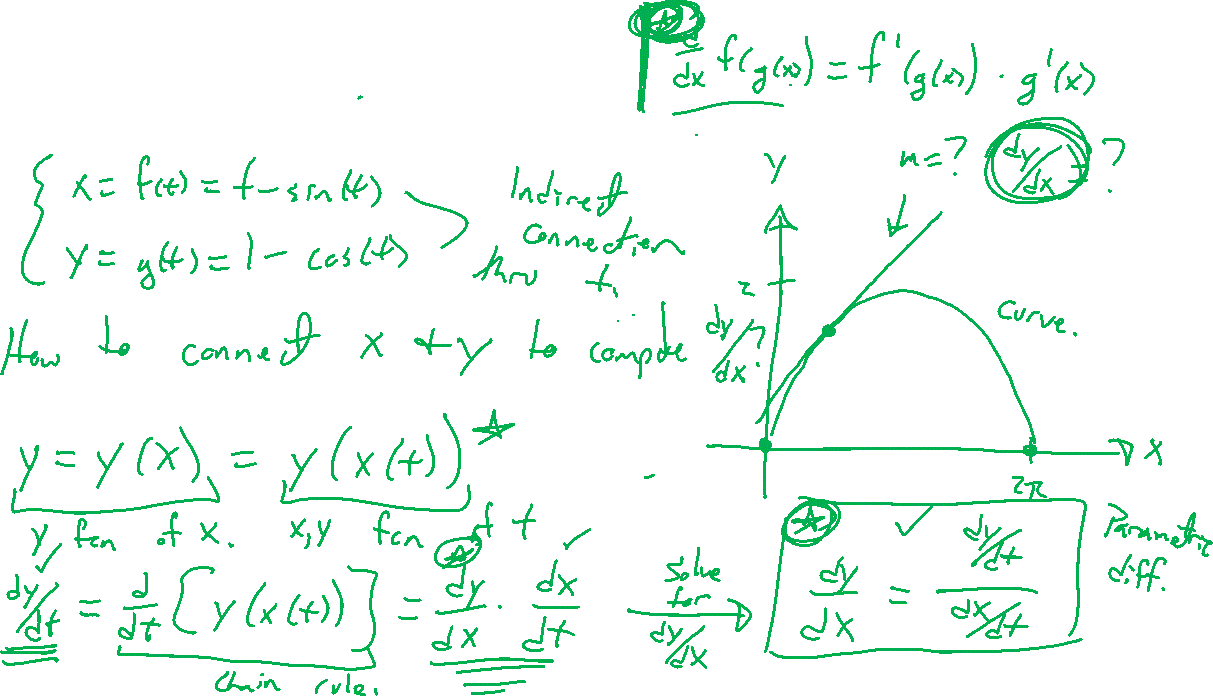 d/dx f(g(x)) = f'(g(x)) · g'(x)
m=? dy/dx = ?
x = f(t) = t - sin(t)
y = g(t) = 1 - cos(t)
Indirect
connection
thru t.
y
2
Curve.
x
2π
How to connect x + y to compute dy/dx?
y = y(x) = y(x(t)) ☆
y fcn of x. x,y fcn of t
dy/dt = d/dt [y(x(t))] = dy/dx · dx/dt
chain rule.
solve
for
dy/dx
☆ ✓
dy/dx = dy/dt / dx/dt
Parametric
diff.